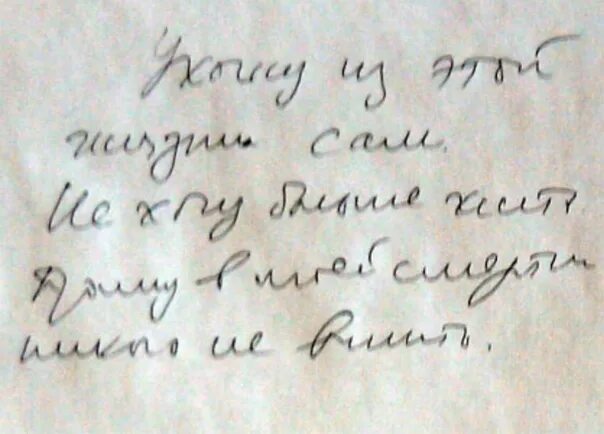 Ухожу из этой
жизни сам.
Не хочу больше жить
Прошу в моей смерти
никого не винить.